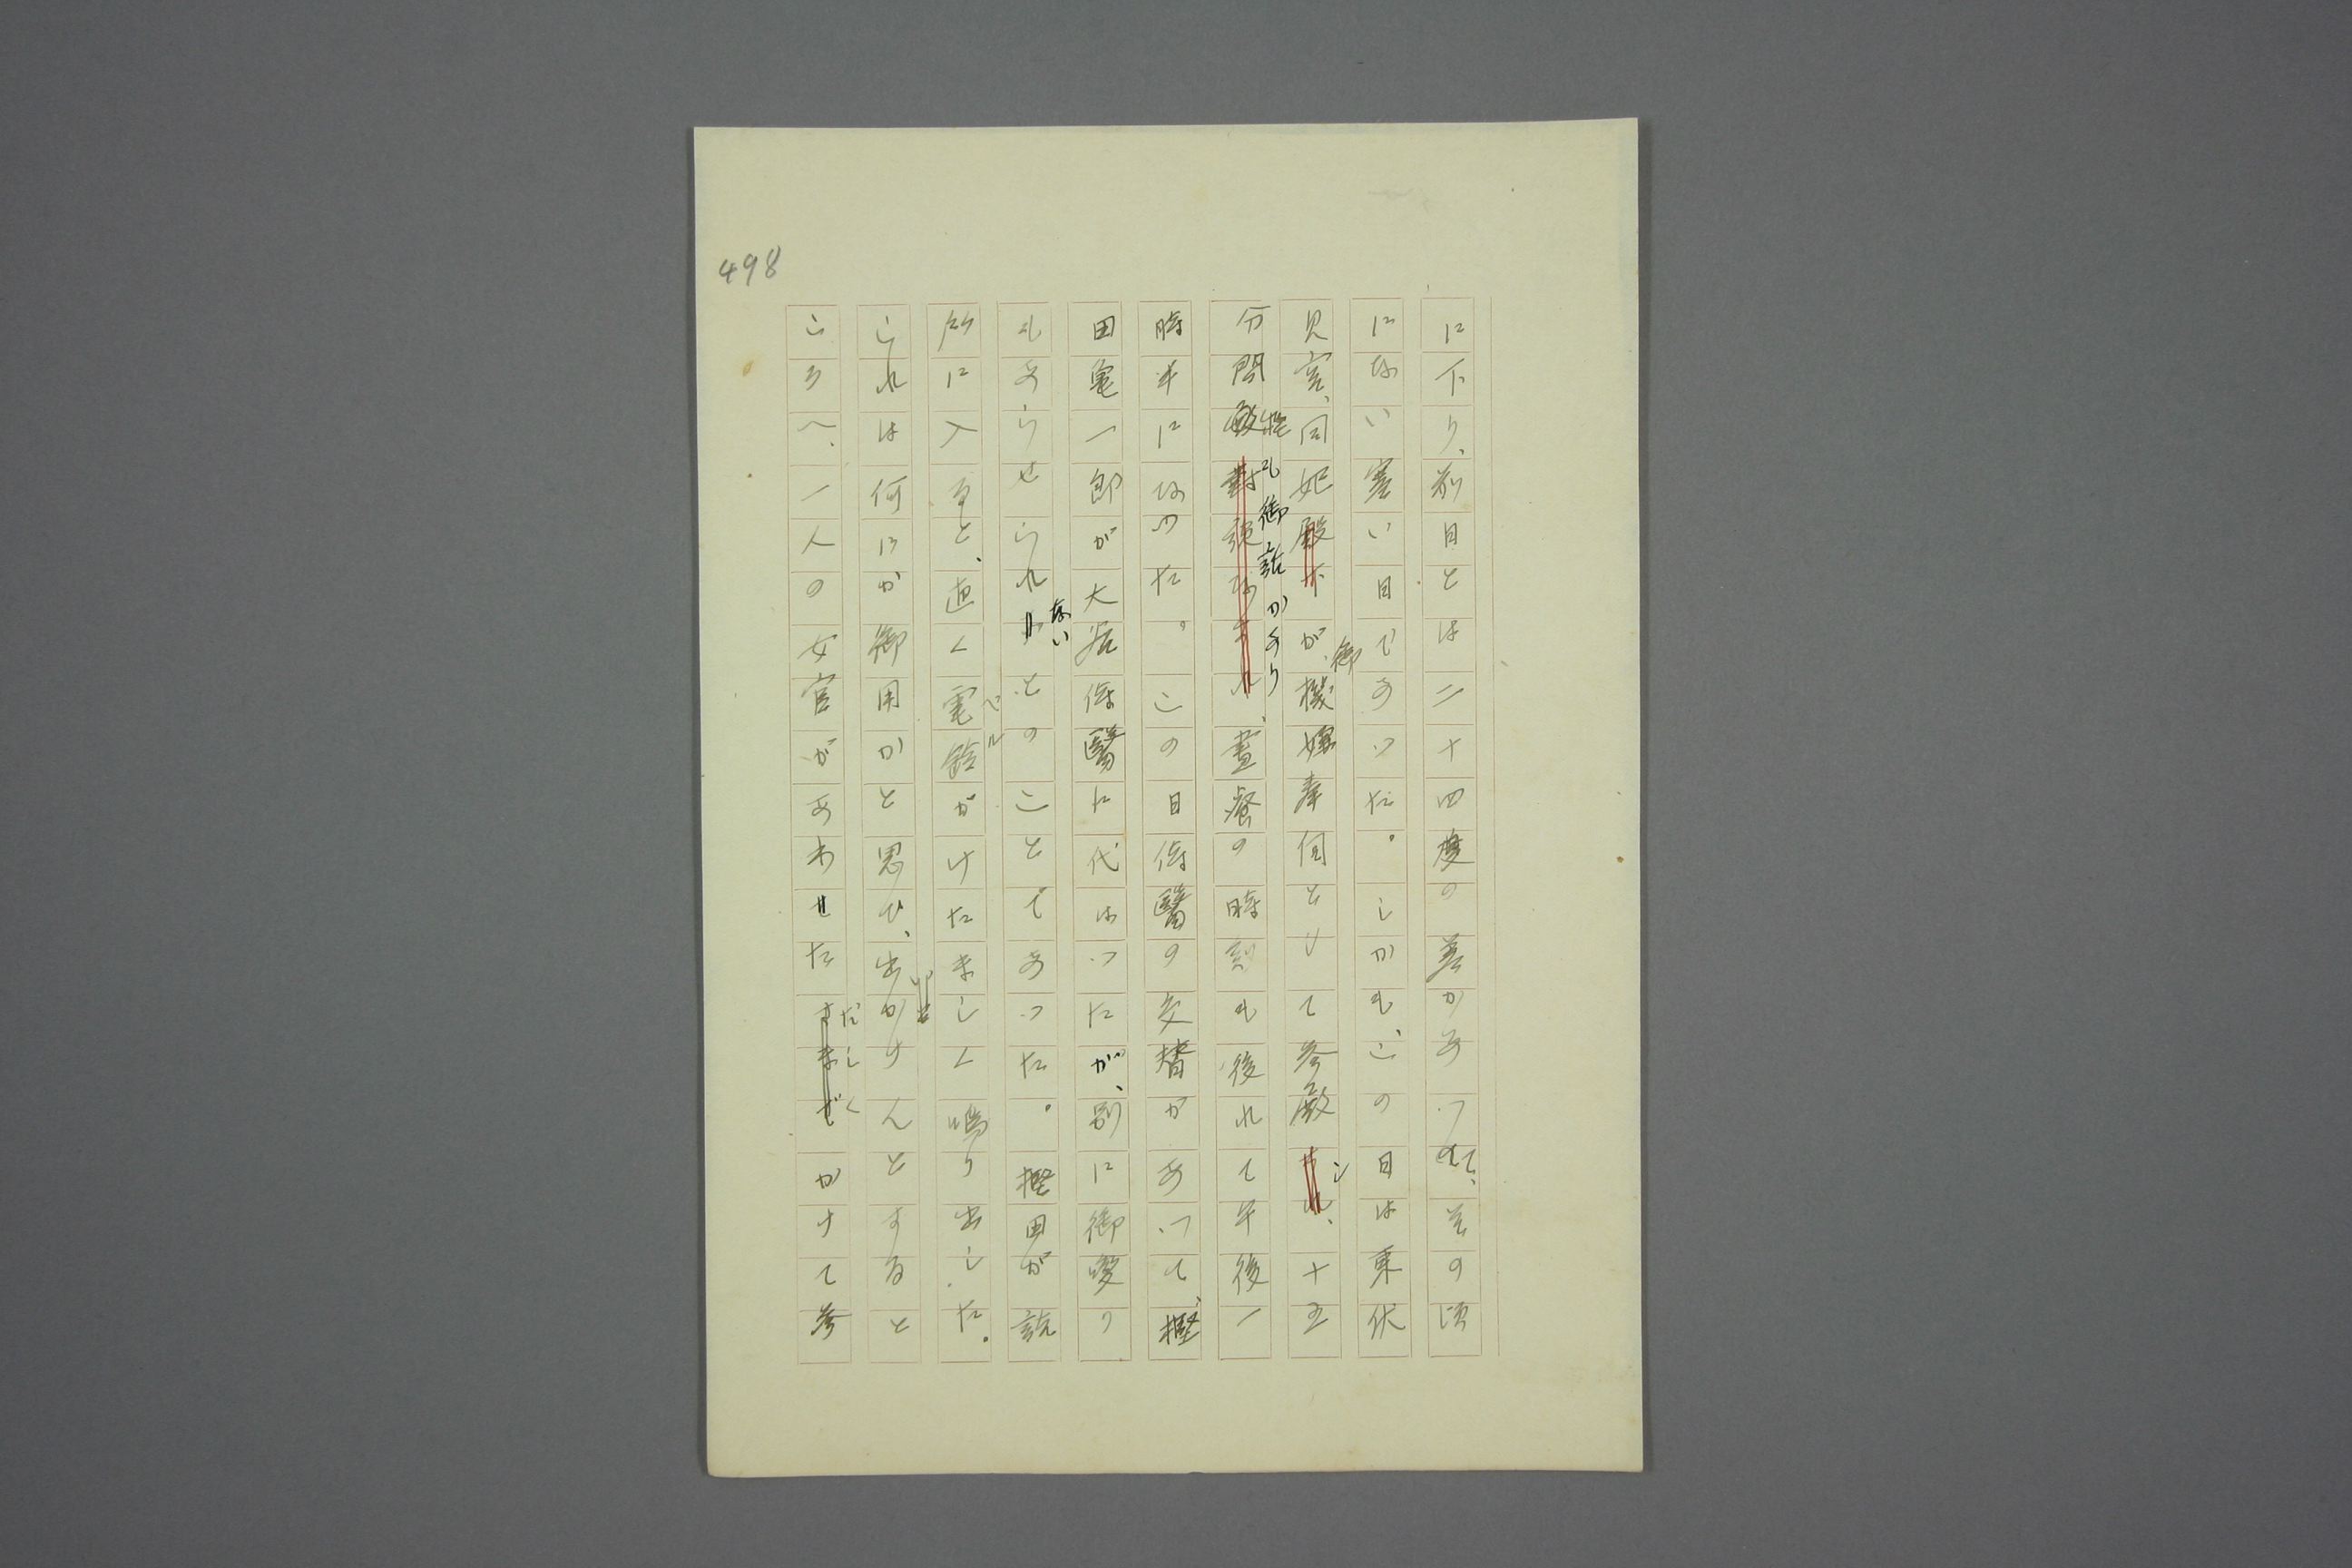 498
に下り、前日とは二十四度の差があつて、その頃
にない寒い日であつた。しかも、この日は東伏
見宮、同妃殿下が御機嫌奉伺として参殿し、十五
分間敬禮御話があり、晝餐の時刻も後れて午後一
時半になつた。この日侍醫の交替があつて、樫
田亀一郎が大谷侍醫に代はつたが、別に御変り
もあらせられないとのことであつた。樫田が詰
所に入ると、直く電鈴ベルがけたましく鳴り出した。
これは何にか御用かと思ひ、出かけんとすると
ころへ、一人の女官があわせただしくかけて参